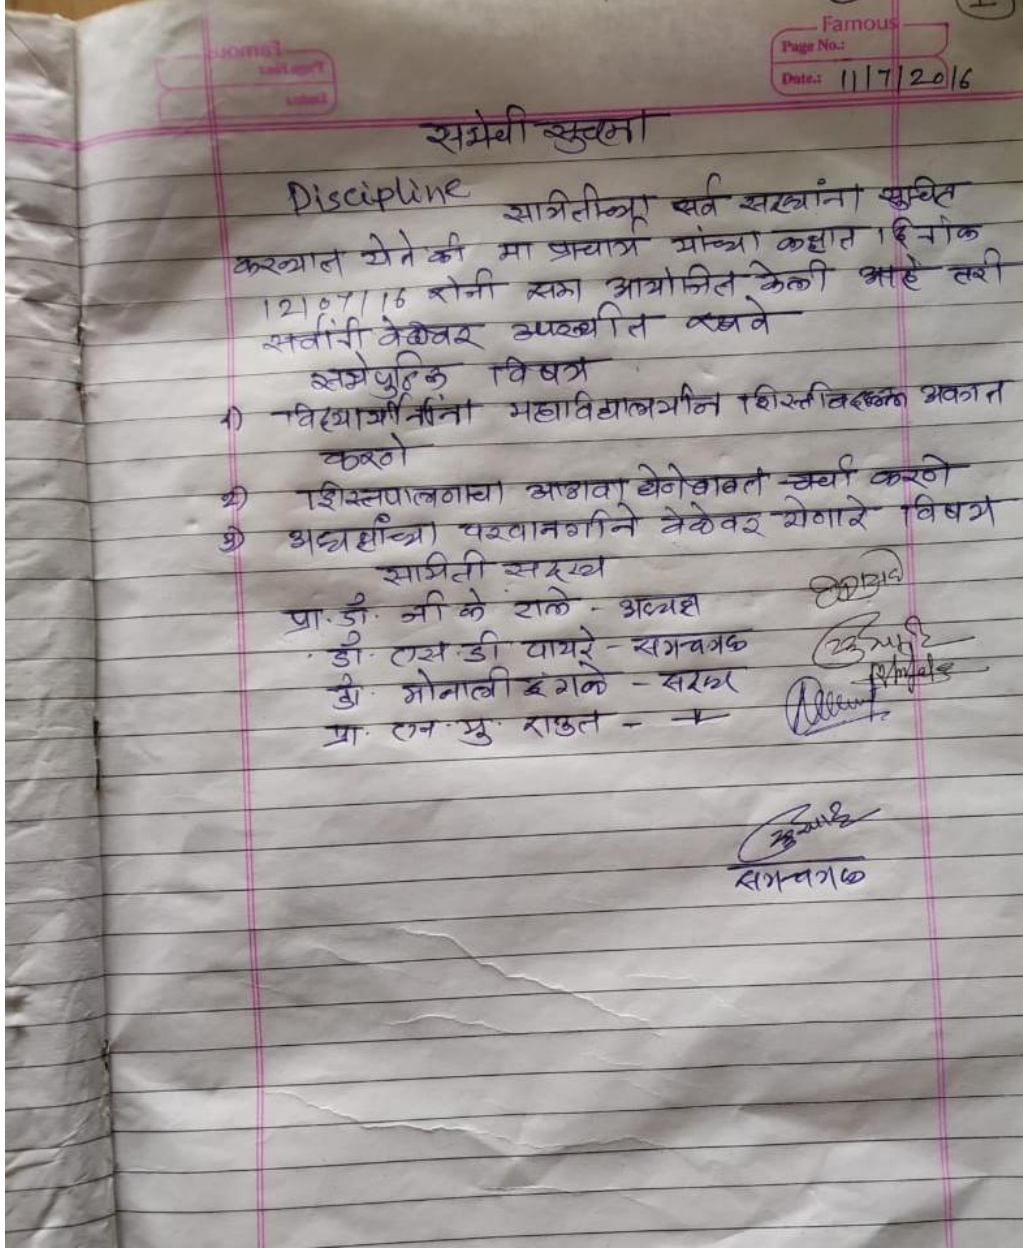 Famous
Page No.:
Date.: 11/7/2016
सभेची सुचना
Discipline समितीच्या सर्व सदस्यांना सुचित
करन्यात येते की मा प्राचार्य यांच्या कक्षात दिनांक
12/07/16 रोजी सभा आयोजित केली आहे तरी
सर्वांनी वेळेवर उपस्थीत रहावे
सभेपुढिल विषय
1) विद्यार्थीनींना महाविद्यालयीन शिस्तीबद्दल अवगत
करणे
2) शिस्तपालनाचा आढावा घेनेबाबत चर्चा करणे
3) अध्यक्षांच्या परवानगीने वेळेवर येणारे विषय
समिती सदस्य
प्रा. डॉ. जी के राले - अध्यक्ष
डॉ. एस डी पायरे - समन्वयक
डॉ. मोनाली इंगळे - सदस्य
प्रा. एन. यु. राऊत -
समन्वयक